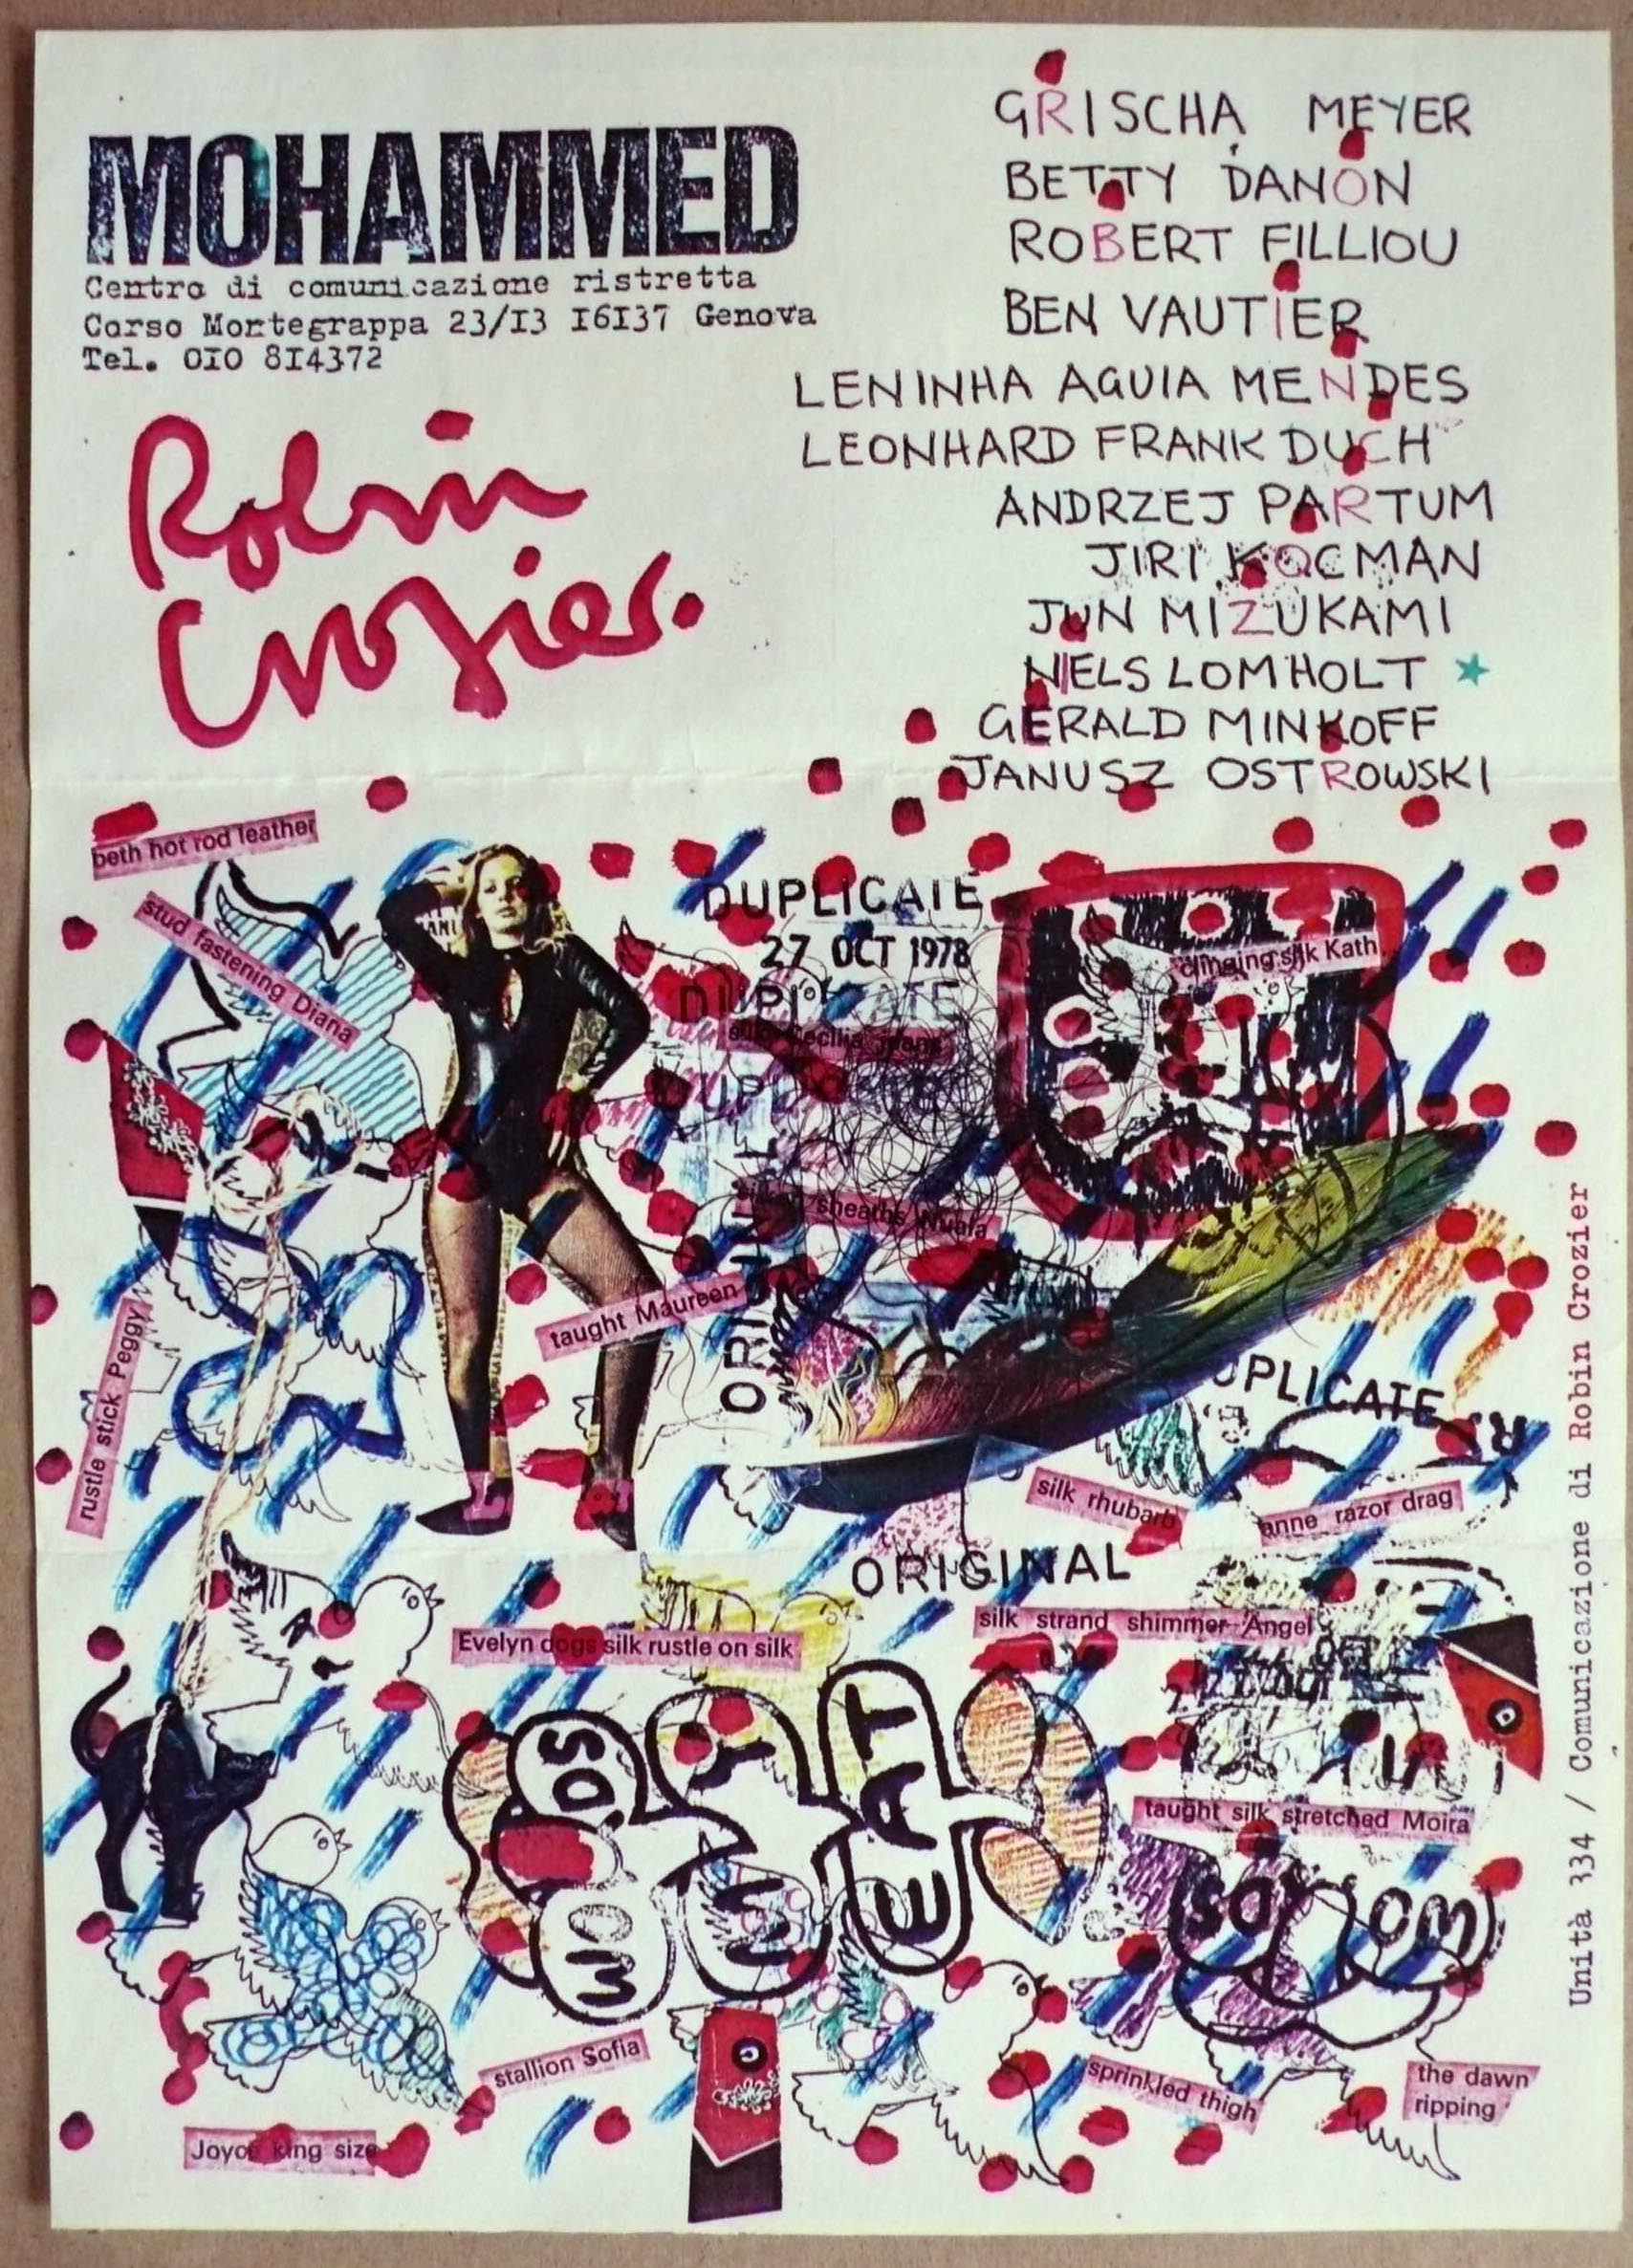 MOHAMMED
Centro di comunicazione ristretta
Corso Montegrappa 23/I3 I6I37 Genova
Tel. OIO 8I4372
Robin
Crozier.
GRISCHA MEYER
BETTY DANON
ROBERT FILLIOU
BEN VAUTIER
LENINHA AGUIA MENDES
LEONHARD FRANK DUCH
ANDRZEJ PARTUM
JIRI KOCMAN
JUN MIZUKAMI
NIELS LOMHOLT
GERALD MINKOFF
JANUSZ OSTROWSKI
beth hot rod leather
stud fastening Diana
DUPLICATE
27 OCT 1978
DUPLICATE
clinging silk Kath
Cecilia jeans
sheaths Nuala
taught Maureen
ORIGINAL
rustle stick Peggy
DUPLICATE
silk rhubarb
anne razor drag
ORIGINAL
silk strand shimmer Angel
Evelyn dogs silk rustle on silk
WORDS
MEAT
taught silk stretched Moira
stallion Sofia
sprinkled thigh
the dawn
ripping
Joyce king size
Unità 334 / Comunicazione di Robin Crozier